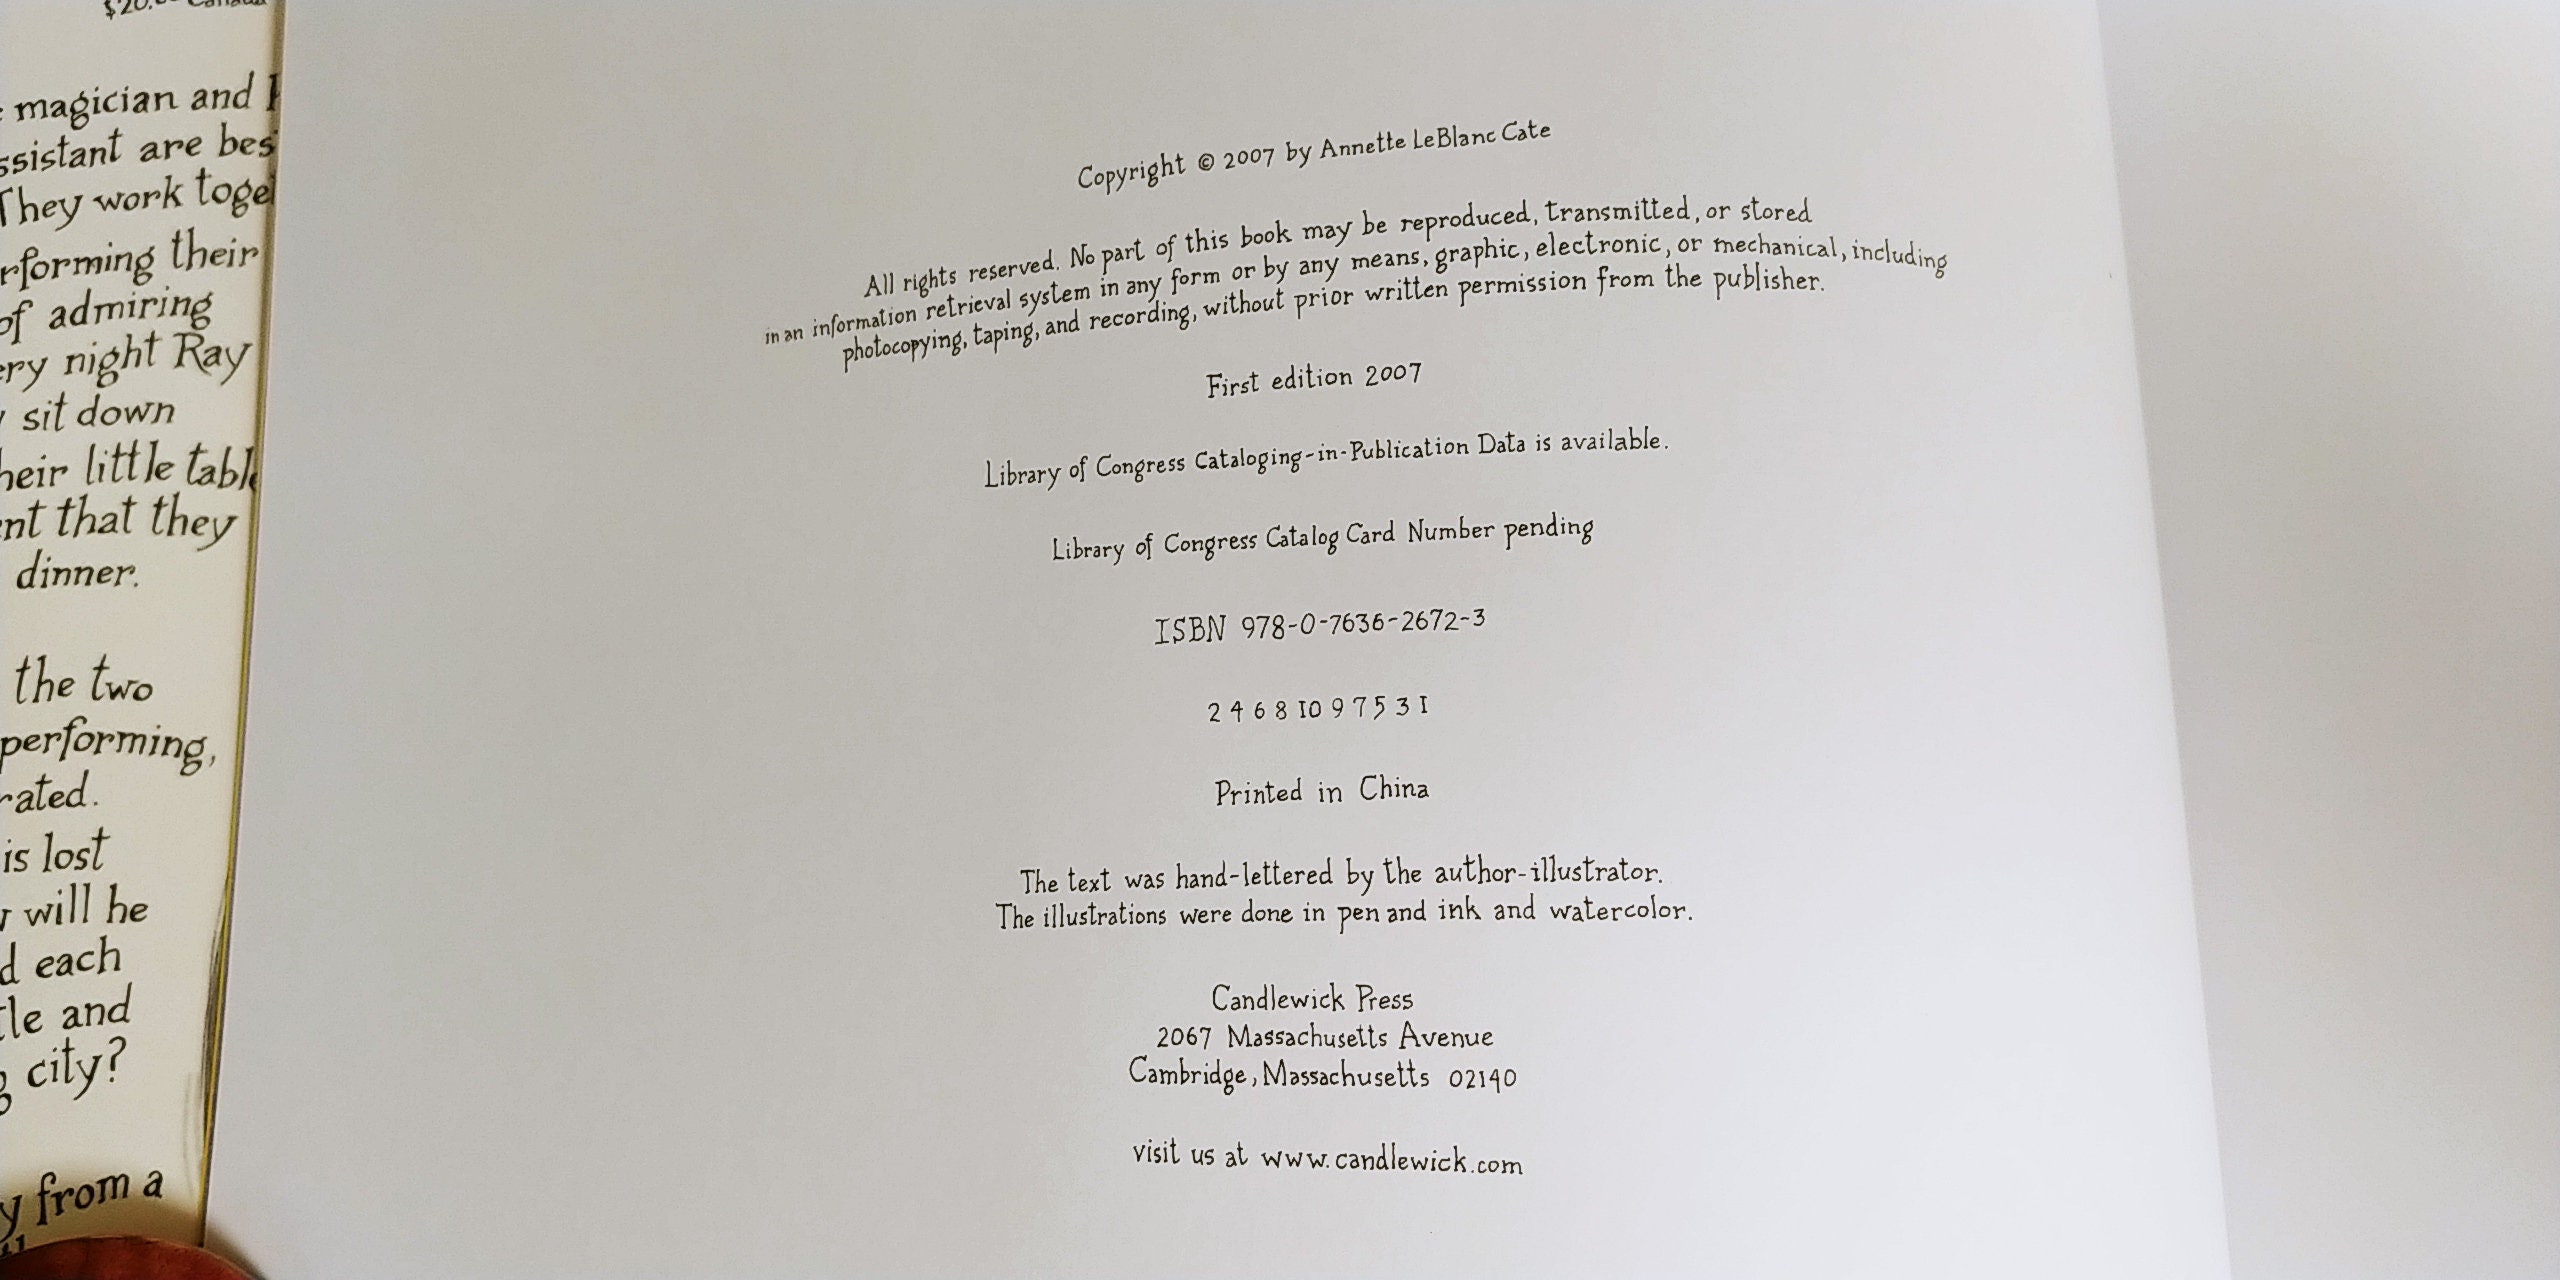 magician and
are
They work
their
of admiring
night Ray
sit down
little
that they
dinner.
the two
performing,
is lost
will he
each
and
city?
from a
Copyright © 2007 by Annette LeBlanc Cate
All rights reserved. No part of this book may be reproduced, transmitted, or stored
in an information retrieval system in any form or by any means, graphic, electronic, or mechanical, including
photocopying, taping, and recording, without prior written permission from the publisher.
First edition 2007
Library of Congress Cataloging-in-Publication Data is available.
Library of Congress Catalog Card Number pending
ISBN 978-0-7636-2672-3
2 4 6 8 10 9 7 5 3 1
Printed in China
The text was hand-lettered by the author-illustrator.
The illustrations were done in pen and ink and watercolor.
Candlewick Press
2067 Massachusetts Avenue
Cambridge, Massachusetts 02140
visit us at www.candlewick.com